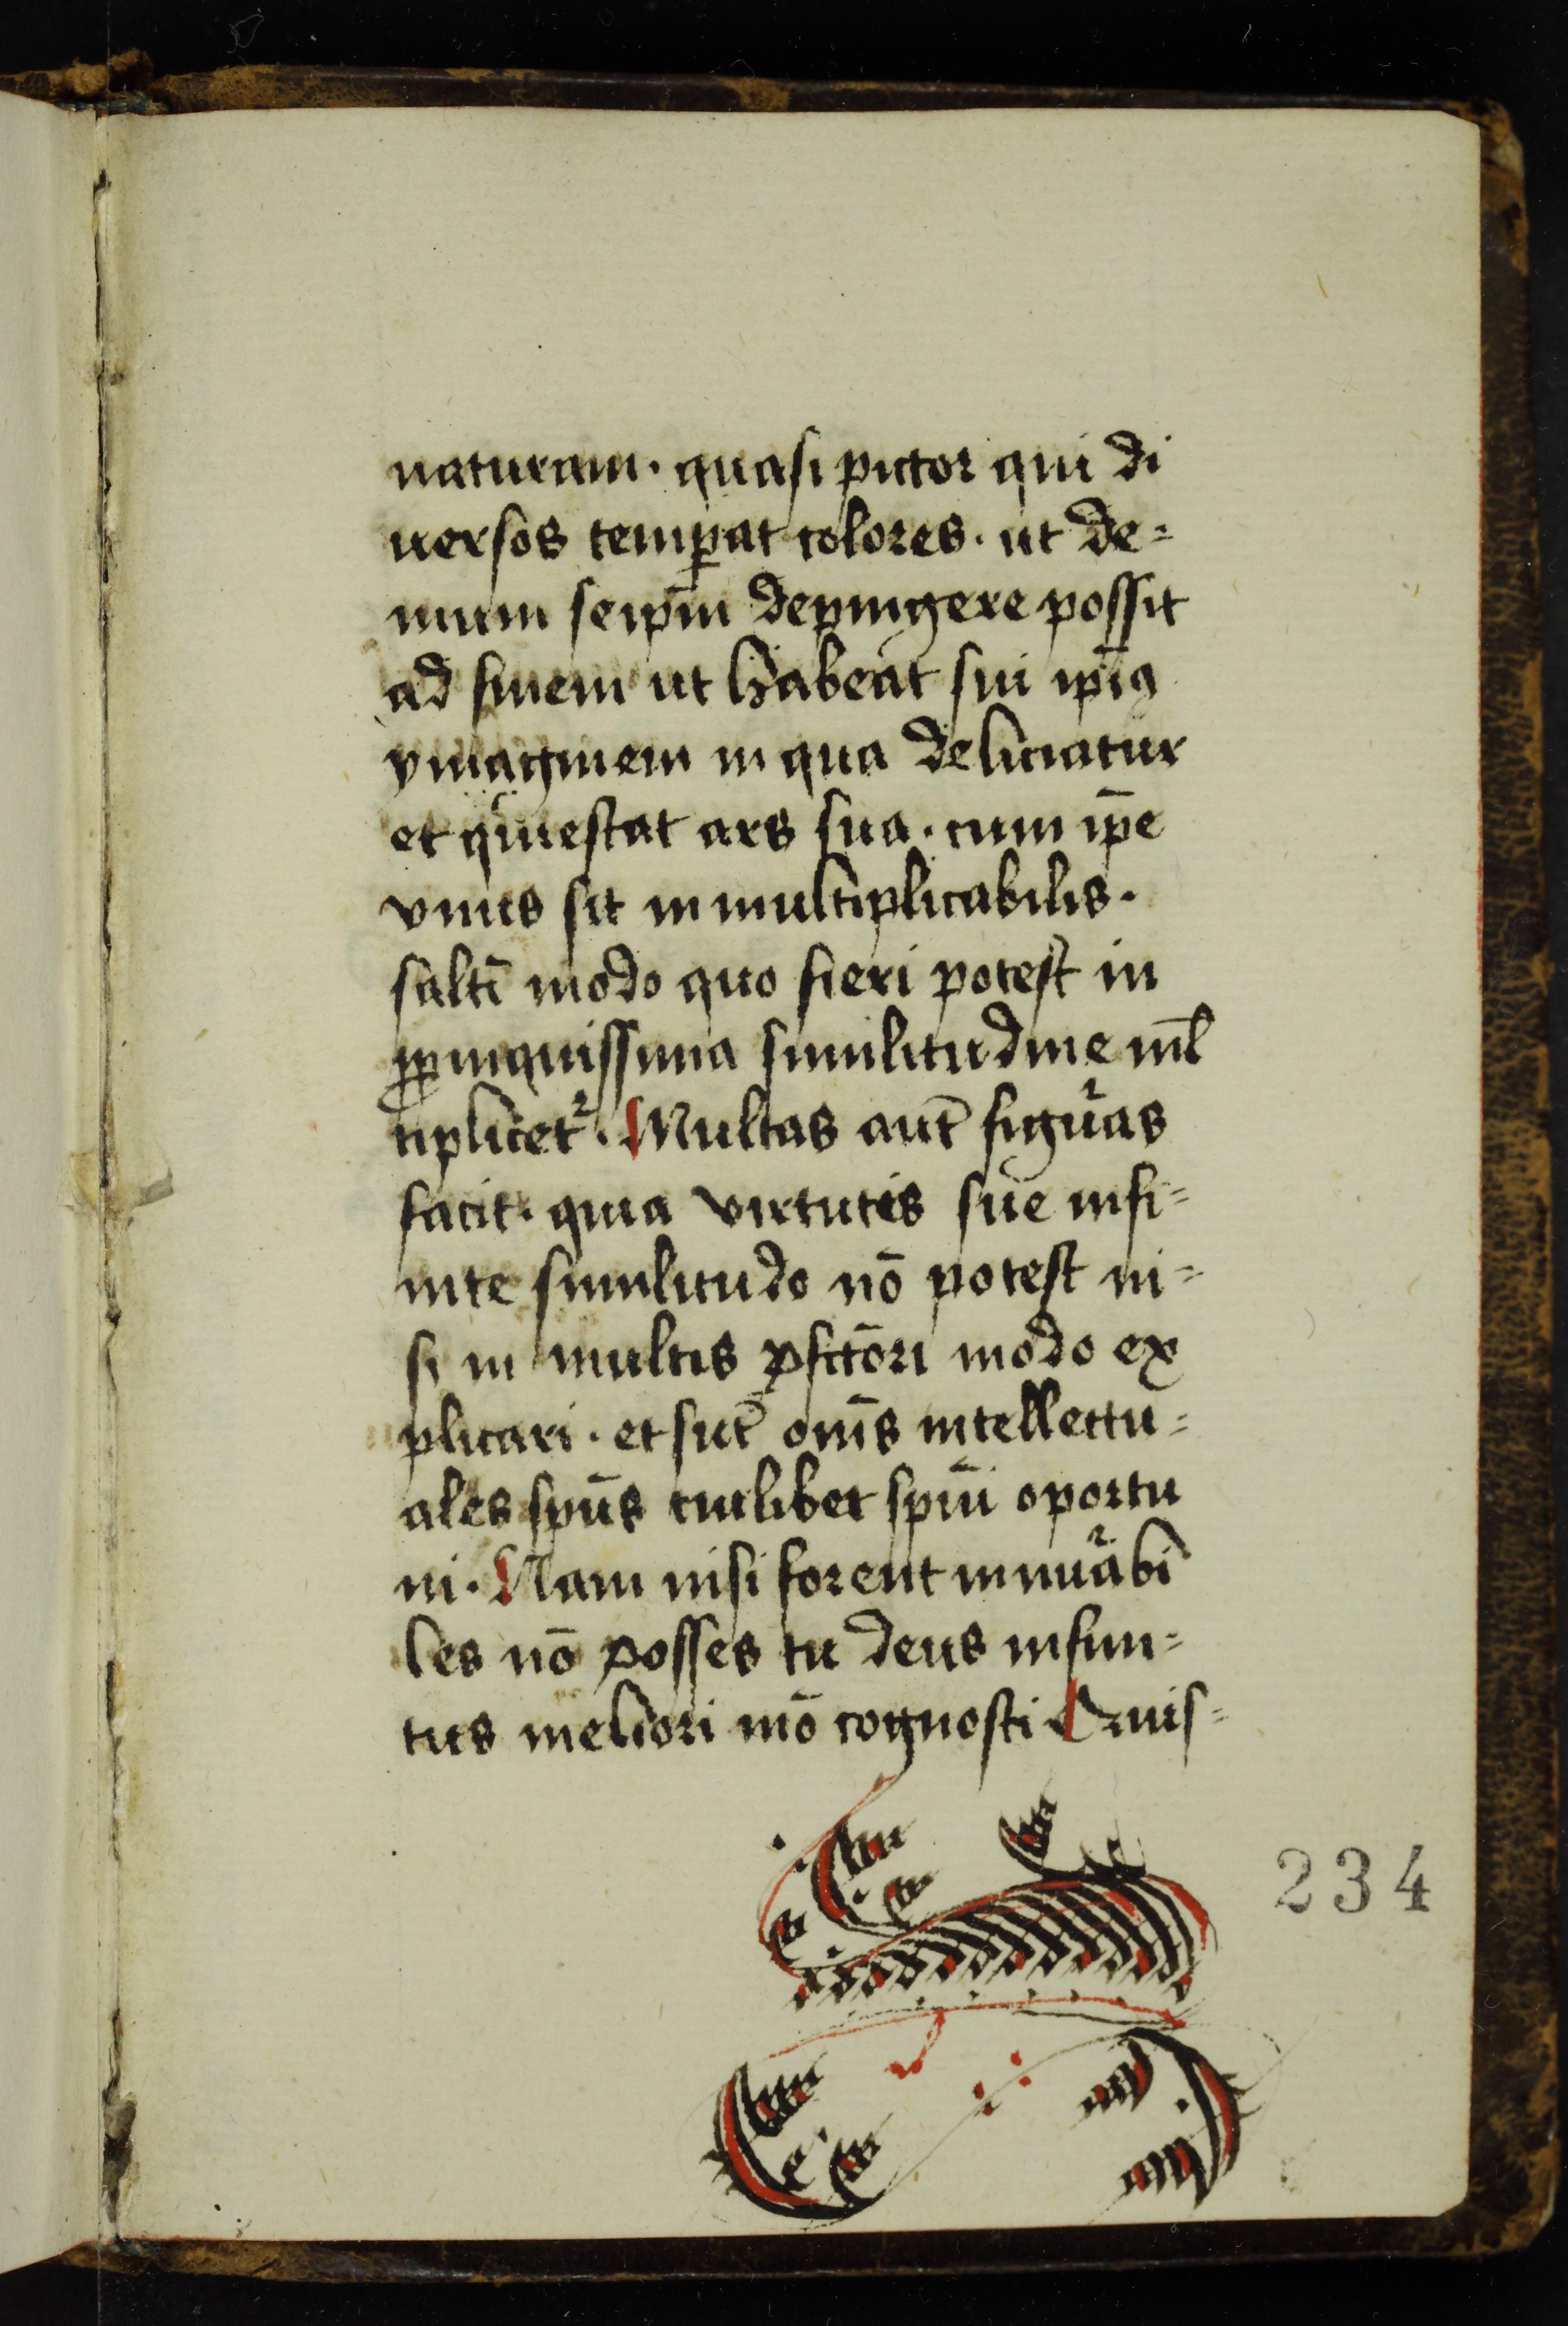 naturam. quasi pictor qui di
uersos temꝑat colores. ut de=
mum seip̄m depingere possit
ad finem ut habeat sui ip̄iꝯ
ymaginem in qua deliciatur
et quiescat ars sua. cum ip̄e
vnus sit inmultiplicabilis.
saltī modo quo fieri potest in
ꝓpinquissima similitudine ml̄
tiplicetᷣ. Multas aut̄ figur̄as
facit. quia virtutis sue infi=
nite similitudo nō potest ni=
si in multis ꝑfct̄ori modo ex
plicari. et sūt om̄s intellectu=
ales sp̄us cuilibet sp̄ui oportu
ni. Nam nisi forent innūabi
les nō posses tu deus infini=
tus meliori mō cognosci Quis=
234